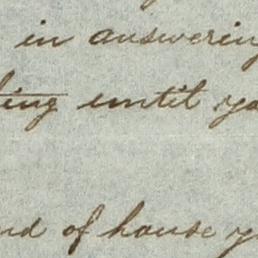 in answering
until yo
nd of house y